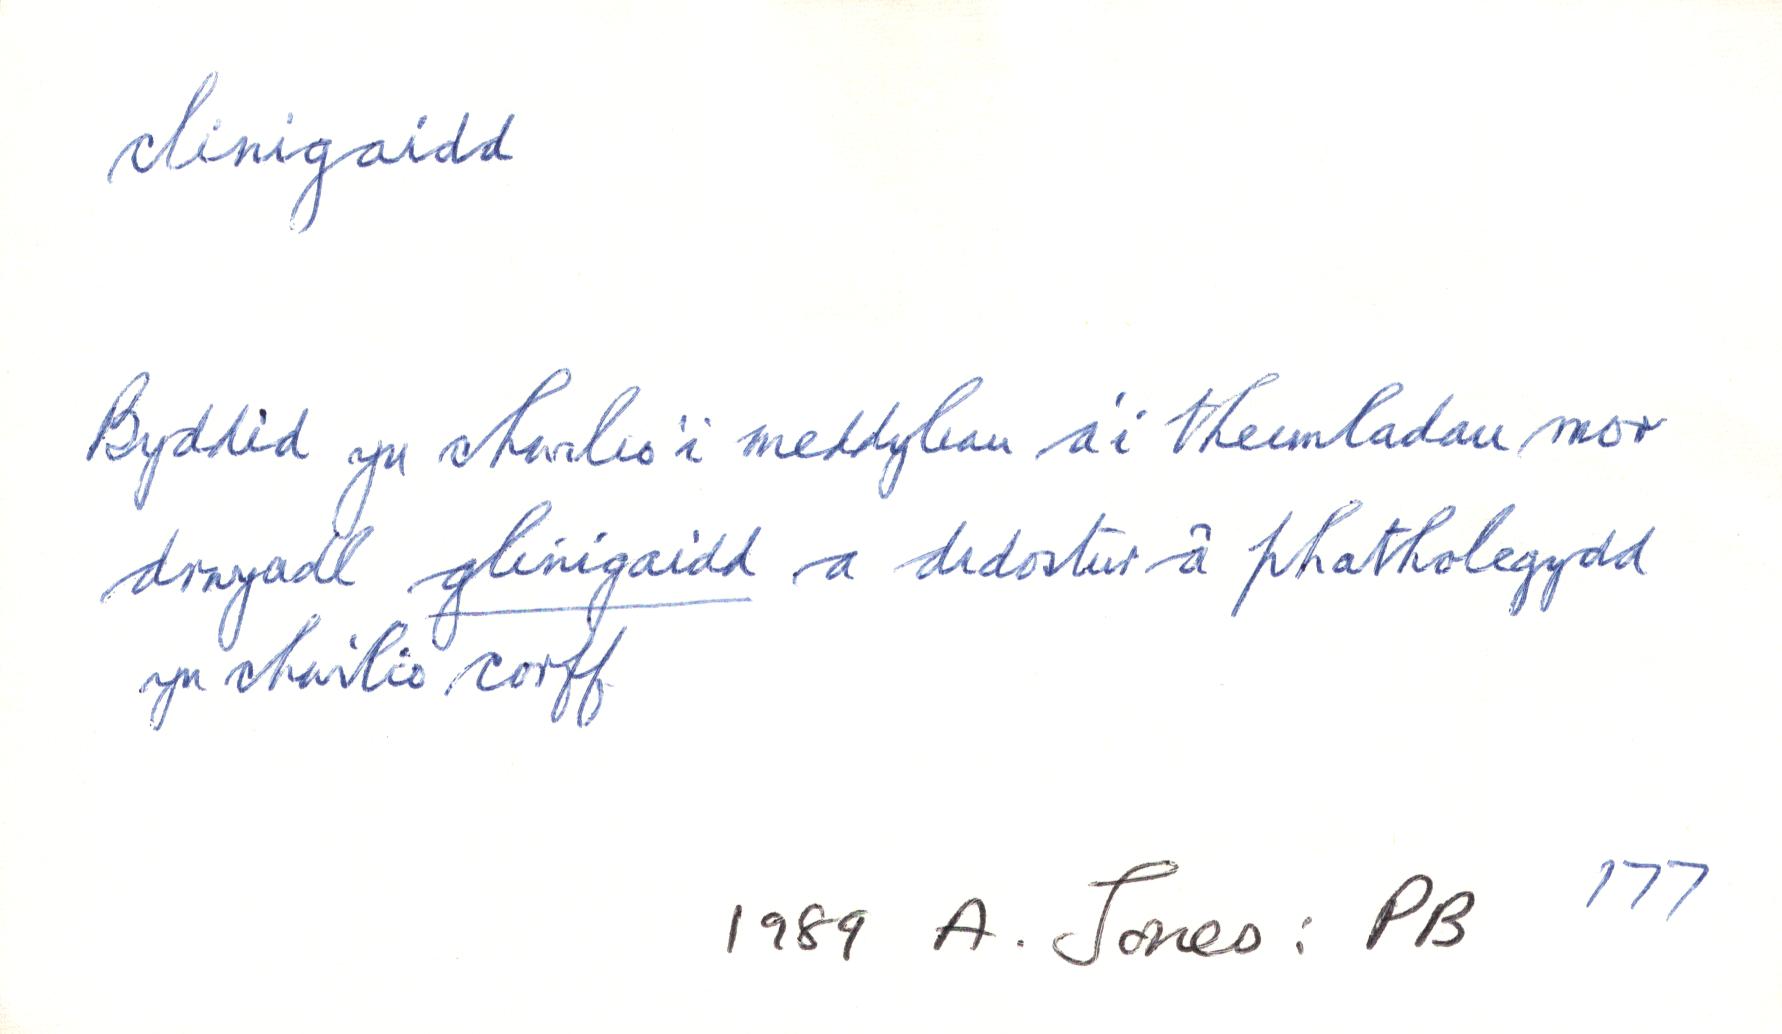 clinigaidd
Byddid yn chwilio'i meddyliau a'i theimladau mor
drwyadl glinigaidd a didostur â phatholegydd
yn chwilio corff
1989 A. Jones: PB 177